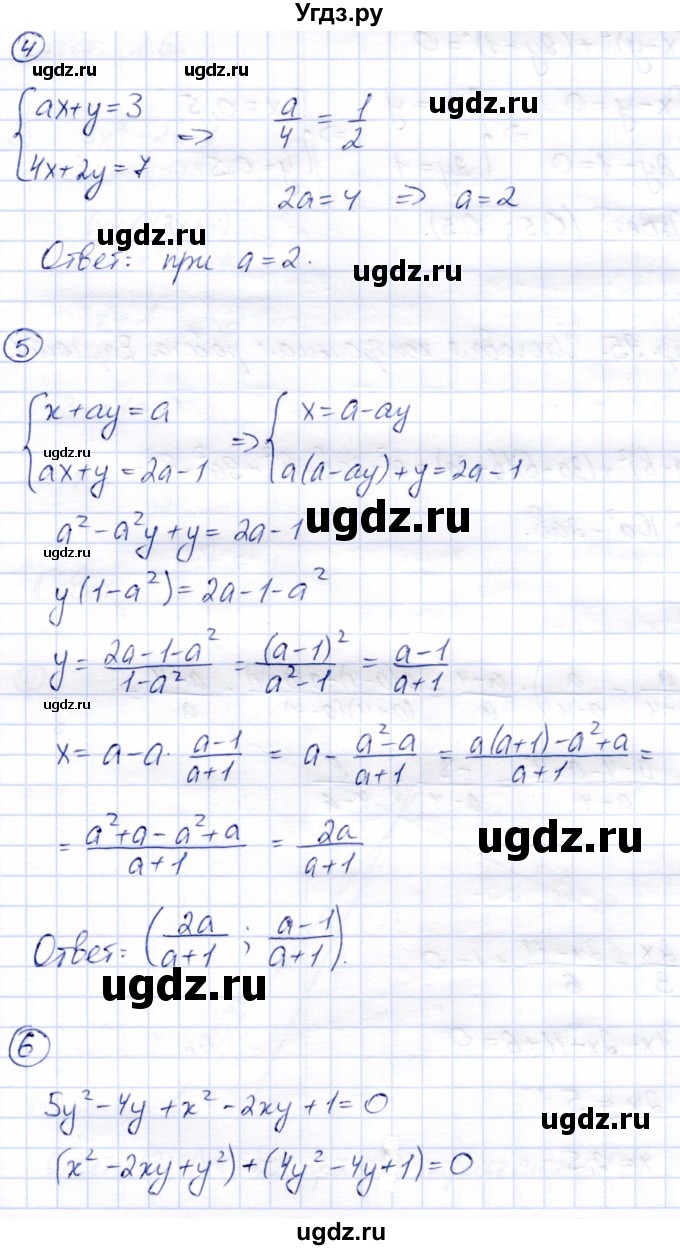 Угдз.ру
④
ugdz.ru ugdz.ru ugdz.ru
{ax+y=3
4x+2y=7 => a/4 = 1/2
2a=4 => a=2
ugdz.ru
Ответ: при a=2.
ugdz.ru
⑤
{x+ay=a
ax+y=2a-1 => {x=a-ay
a(a-ay)+y=2a-1
ugdz.ru
a²-a²y+y=2a-1
ugdz.ru
ugdz.ru
y(1-a²)=2a-1-a²
y= (2a-1-a²)/(1-a²) = (a-1)²/(a²-1) = (a-1)/(a+1)
ugdz.ru
x=a-a· (a-1)/(a+1) = a- (a²-a)/(a+1) = (a(a+1)-a²+a)/(a+1) =
= (a²+a-a²+a)/(a+1) = 2a/(a+1)
ugdz.ru
Ответ: (2a/(a+1); (a-1)/(a+1)).
ugdz.ru
⑥
5y²-4y+x²-2xy+1=0
ugdz.ru
(x²-2xy+y²)+(4y²-4y+1)=0
ugdz.ru